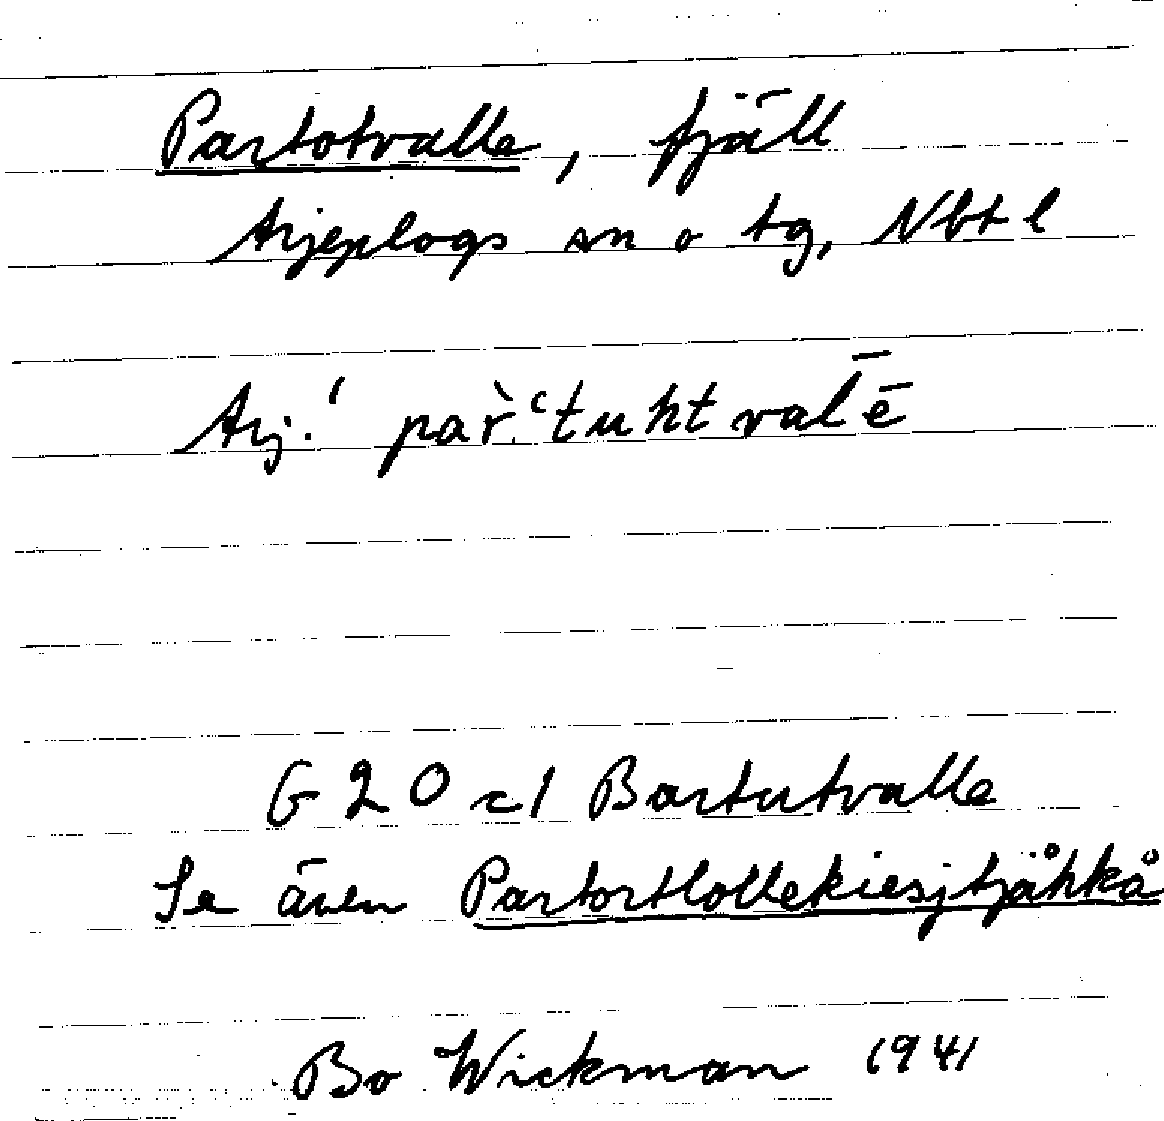 Partotvalle, fjäll
Arjeplogs sn o tg, Nbt l
Arj.
G20 c1 Bartutvalle
Se även Partortlollekiesjtjåhkå
Bo Wickman 1941